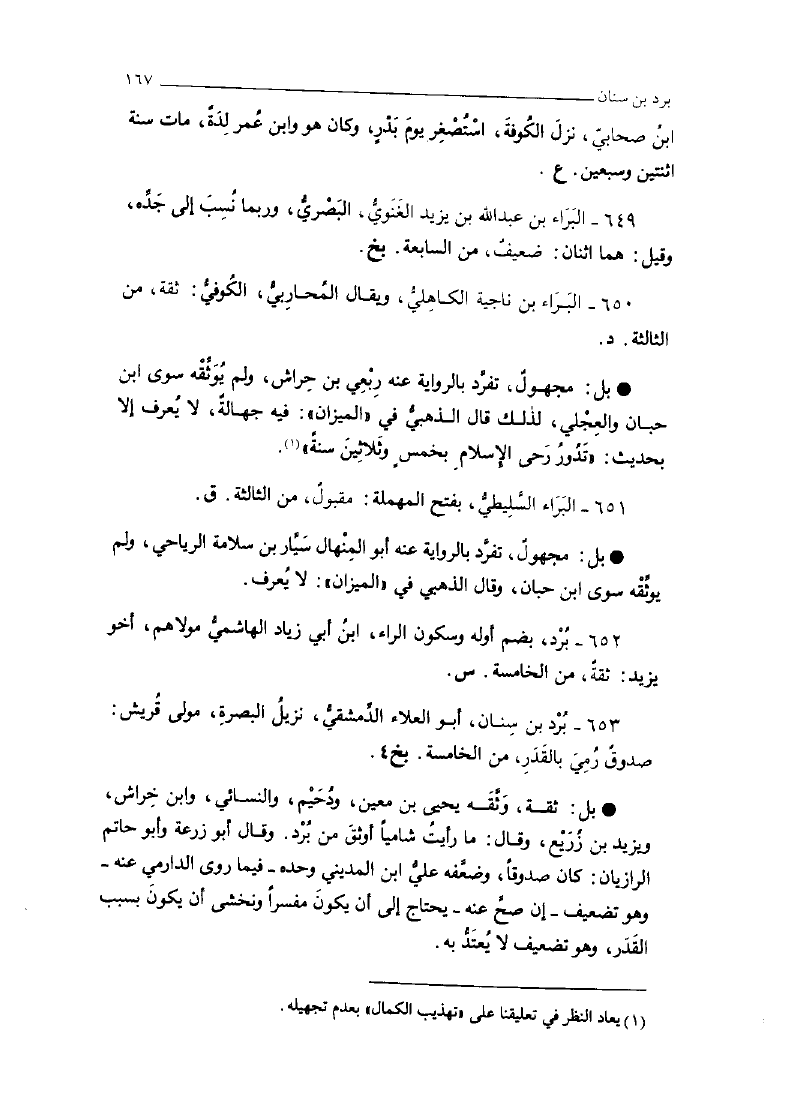 برد بن سنان ١٦٧
ابنُ صحابيّ، نزلَ الكُوفةَ، اسْتُصْغِر يومَ بَدْرٍ، وكان هو وابن عُمر لِدَةً، مات سنة
اثنتين وسبعين. ع .
٦٤٩ ـ البَرَاء بن عبدالله بن يزيد الغَنَويُّ، البَصْريُّ، وربما نُسِبَ إلى جَدِّه،
وقيل: هما اثنان: ضعيفٌ، من السابعة. بخ.
٦٥٠ ـ البَرَاء بن ناجية الكاهليُّ، ويقال المُحاربيُّ، الكُوفيُّ: ثقة، من
الثالثة. د.
● بل: مجهولٌ، تفرَّد بالرواية عنه رِبْعي بن حِراش، ولم يُوَثِّقْه سوى ابن
حبان والعِجْلي، لذلك قال الذهبيُّ في «الميزان»: فيه جهالةٌ، لا يُعرف إلا
بحديث: «تَدُورُ رَحى الإسلام بخمسٍ وثَلاثِينَ سنةً»(١).
٦٥١ ـ البَرَاء السَّلِيطيُّ، بفتح المهملة: مقبولٌ، من الثالثة. ق.
● بل: مجهولٌ، تفرَّد بالرواية عنه أبو المِنْهال سَيَّار بن سلامة الرياحي، ولم
يوثِّقْه سوى ابن حبان، وقال الذهبي في «الميزان»: لا يُعرف.
٦٥٢ ـ بُرْد، بضم أوله وسكون الراء، ابنُ أبي زياد الهاشميُّ مولاهم، أخو
يزيد: ثقةٌ، من الخامسة. س.
٦٥٣ ـ بُرْد بن سِنان، أبو العلاء الدِّمشقيُّ، نزيلُ البصرةِ، مولى قُريش:
صدوقٌ رُمِيَ بالقَدَرِ، من الخامسة. بخ٤.
● بل: ثقة، وَثَّقَه يحيى بن معين، ودُحَيْم، والنسائي، وابن خِراش،
ويزيد بن زُرَيْع، وقال: ما رأيتُ شامياً أوثقَ من بُرْد. وقال أبو زرعة وأبو حاتم
الرازيان: كان صدوقاً، وضعَّفه عليُّ ابن المديني وحده ـ فيما روى الدارمي عنه ـ
وهو تضعيف ـ إن صحَّ عنه ـ يحتاج إلى أن يكونَ مفسراً ونخشى أن يكونَ بسبب
القَدَر، وهو تضعيف لا يُعتَدُّ به.
(١) يعاد النظر في تعليقنا على «تهذيب الكمال» بعدم تجهيله.